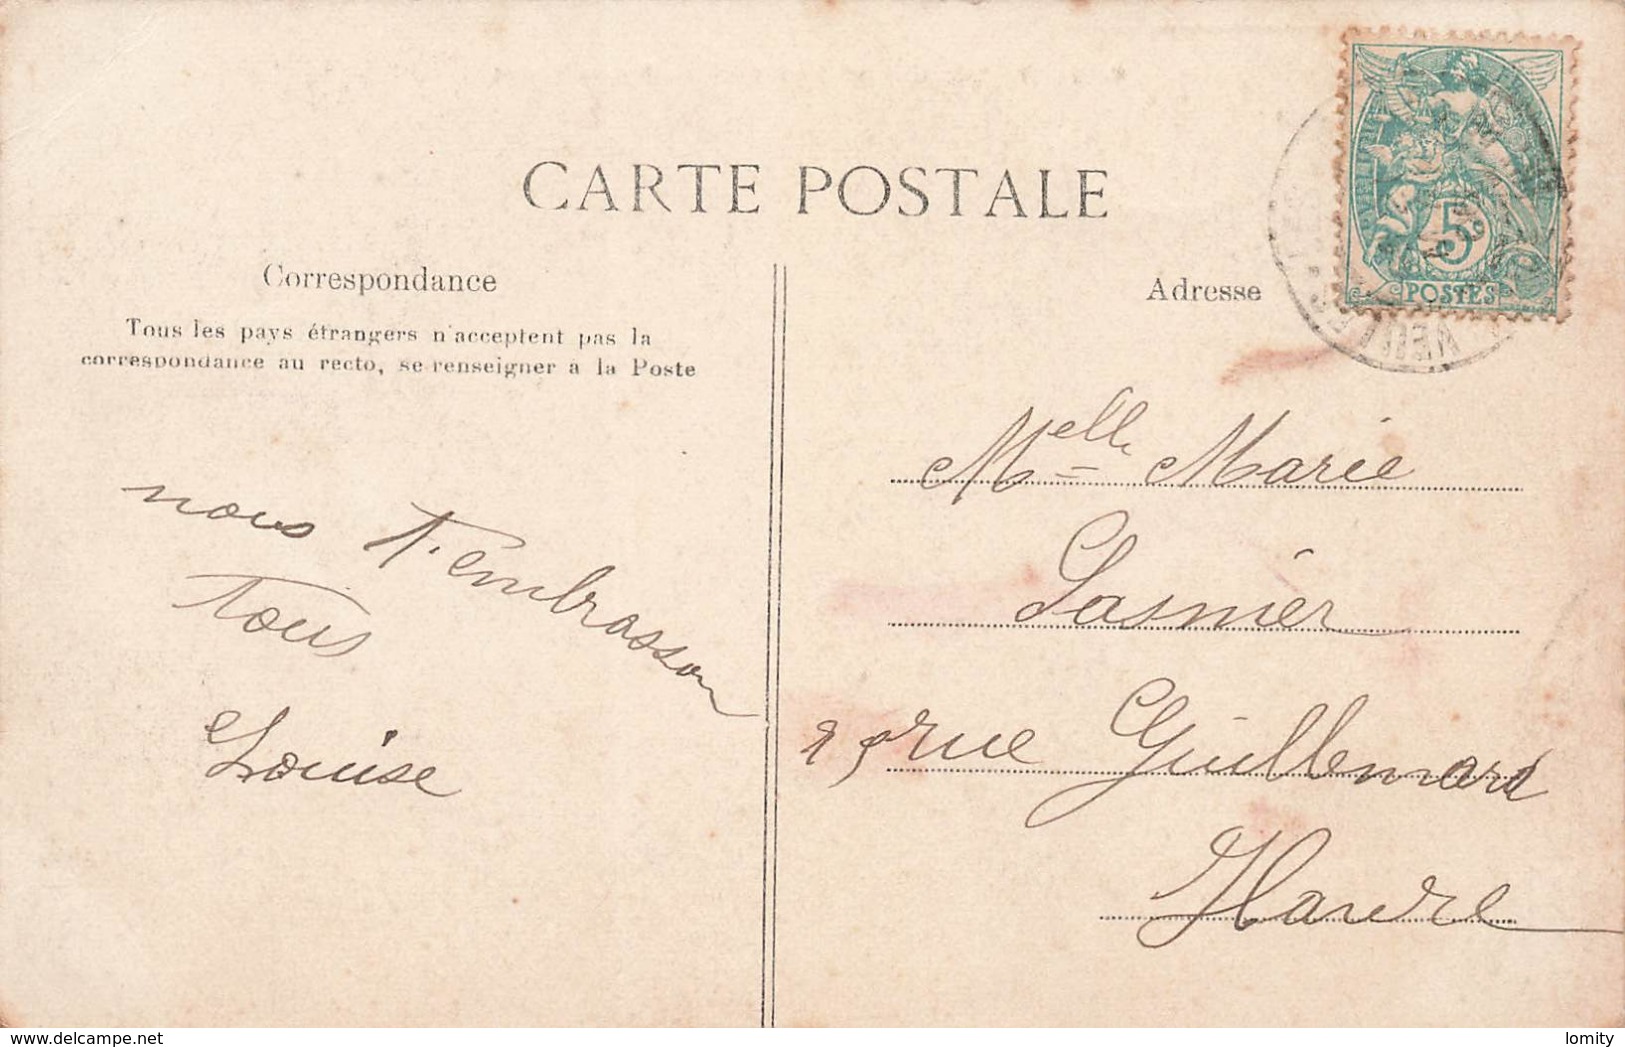 CARTE POSTALE
Correspondance
Tous les pays étrangers n'acceptent pas la
correspondance au recto, se renseigner à la Poste
Adresse
5
POSTES
nous t'embrasson
tous
Louise
Melle Marie
Lasnier
rue Guillemard
Havre
delcampe.net
lomity